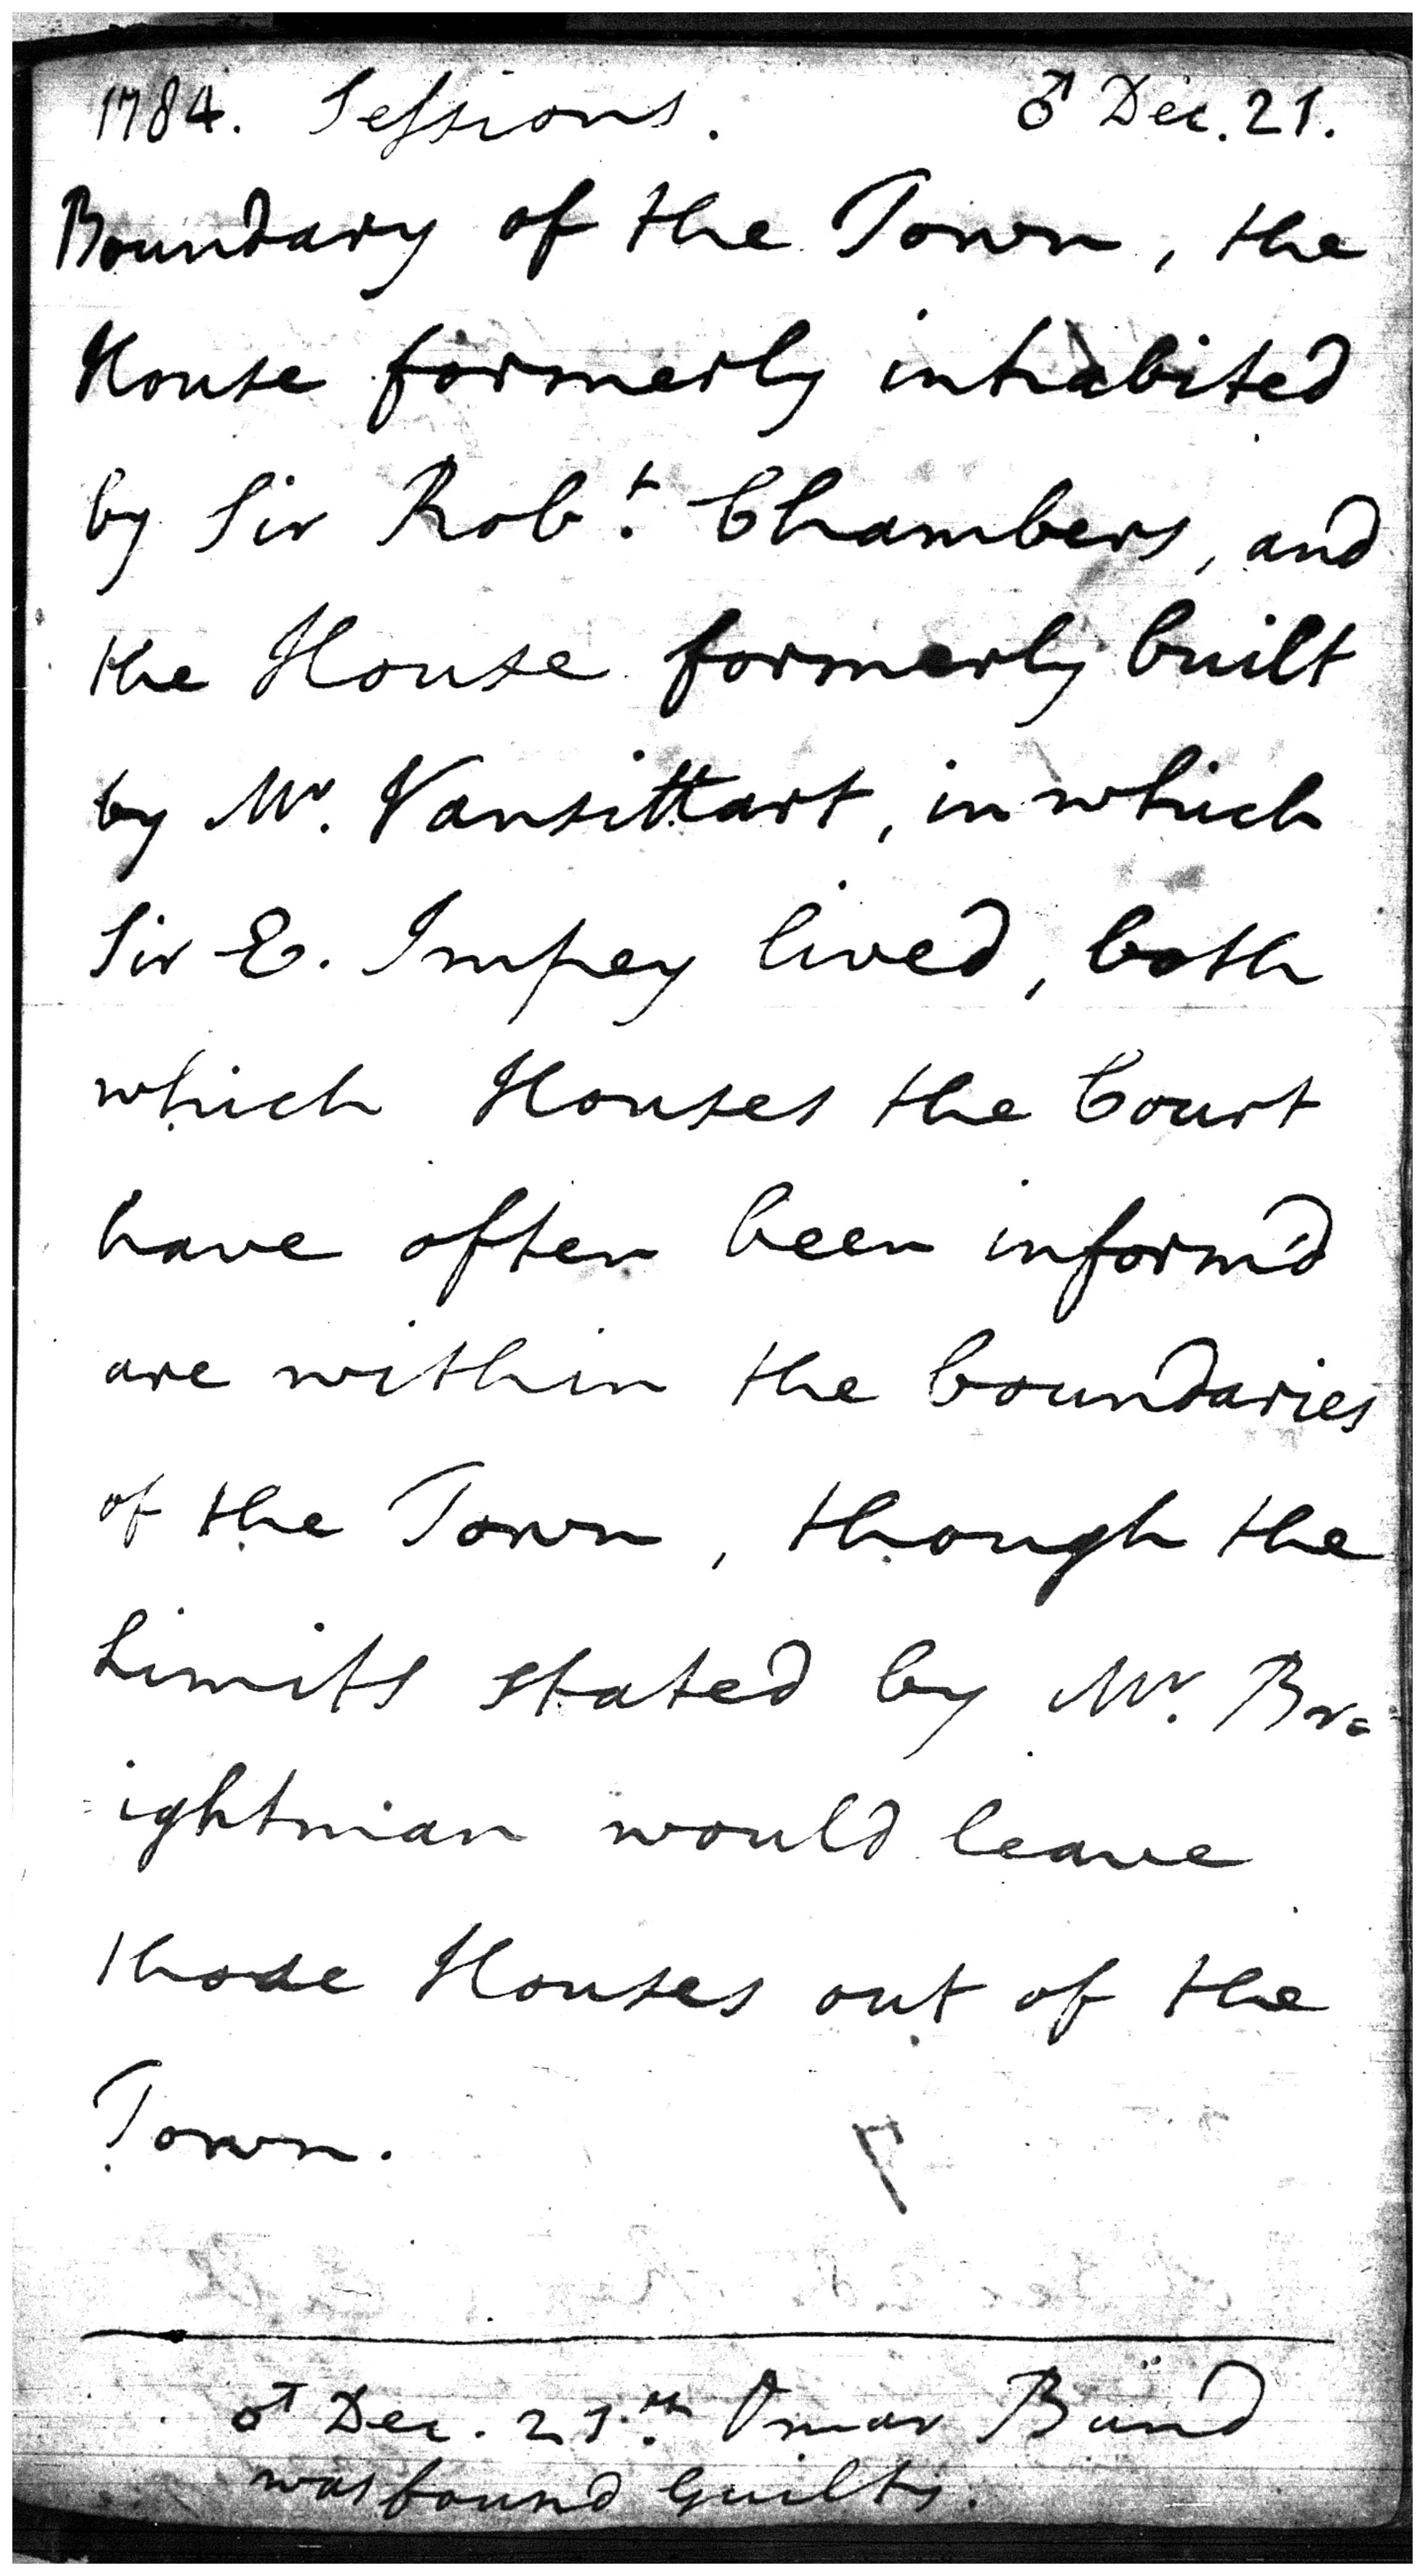 1784. Sessions. ♂ Dec. 21.
Boundary of the Town, the
House formerly inhabited
by Sir Rob.t Chambers, and
the House formerly built
by Mr. Vansittart, in which
Sir E. Impey lived, both
which Houses the Court
have often been inform'd
are within the boundaries
of the Town, though the
Limits stated by Mr. Br=
=ightman would leave
those Houses out of the
Town.
♂ Dec. 21.st Omar Bünd
was found Guilty.